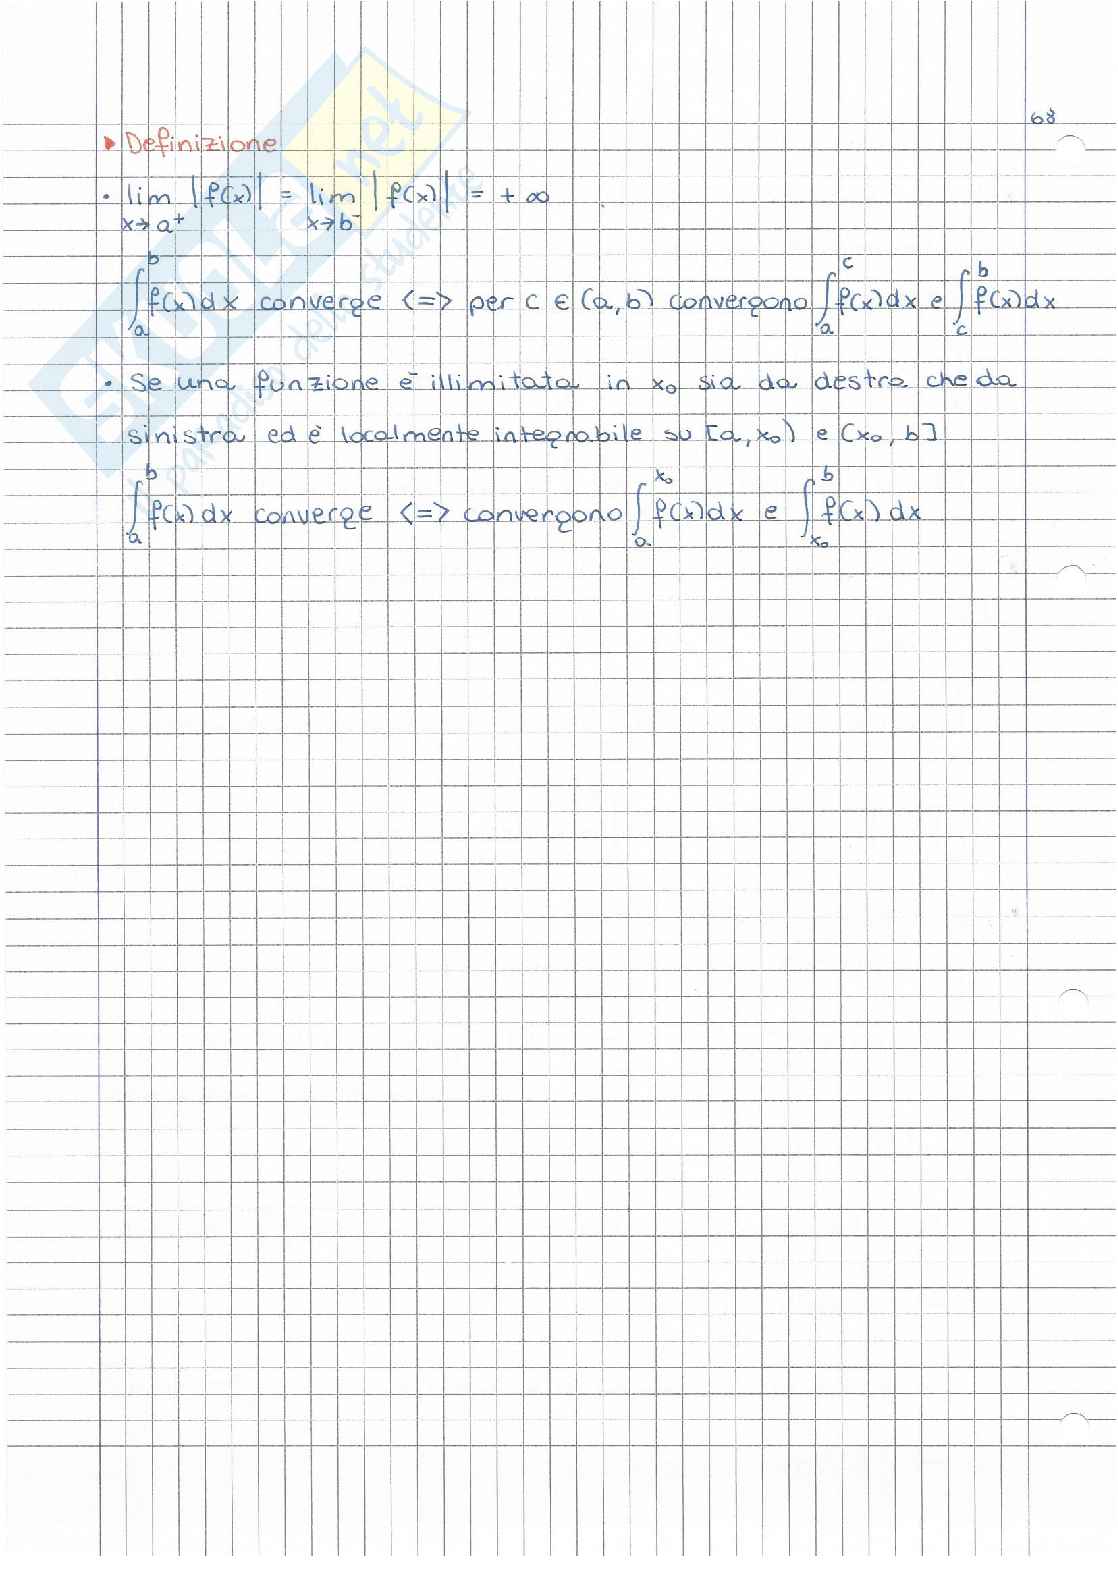 68
▸ Definizione
• lim |f(x)| = lim |f(x)| = + ∞
x→a⁺ x→b⁻
∫ₐᵇ f(x)dx converge <=> per c ∈ (a,b) convergono ∫ₐᶜ f(x)dx e ∫_c^b f(x)dx
• Se una funzione è illimitata in x₀ sia da destra che da
sinistra ed è localmente integrabile su [a,x₀) e (x₀,b]
∫ₐᵇ f(x)dx converge <=> convergono ∫_a^x₀ f(x)dx e ∫_x₀^b f(x)dx
SKUOLA.net
il paradiso dello studente